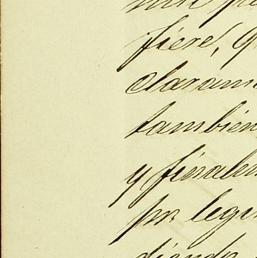 fiere, q
claram
también
y finalm
por legi
diendo